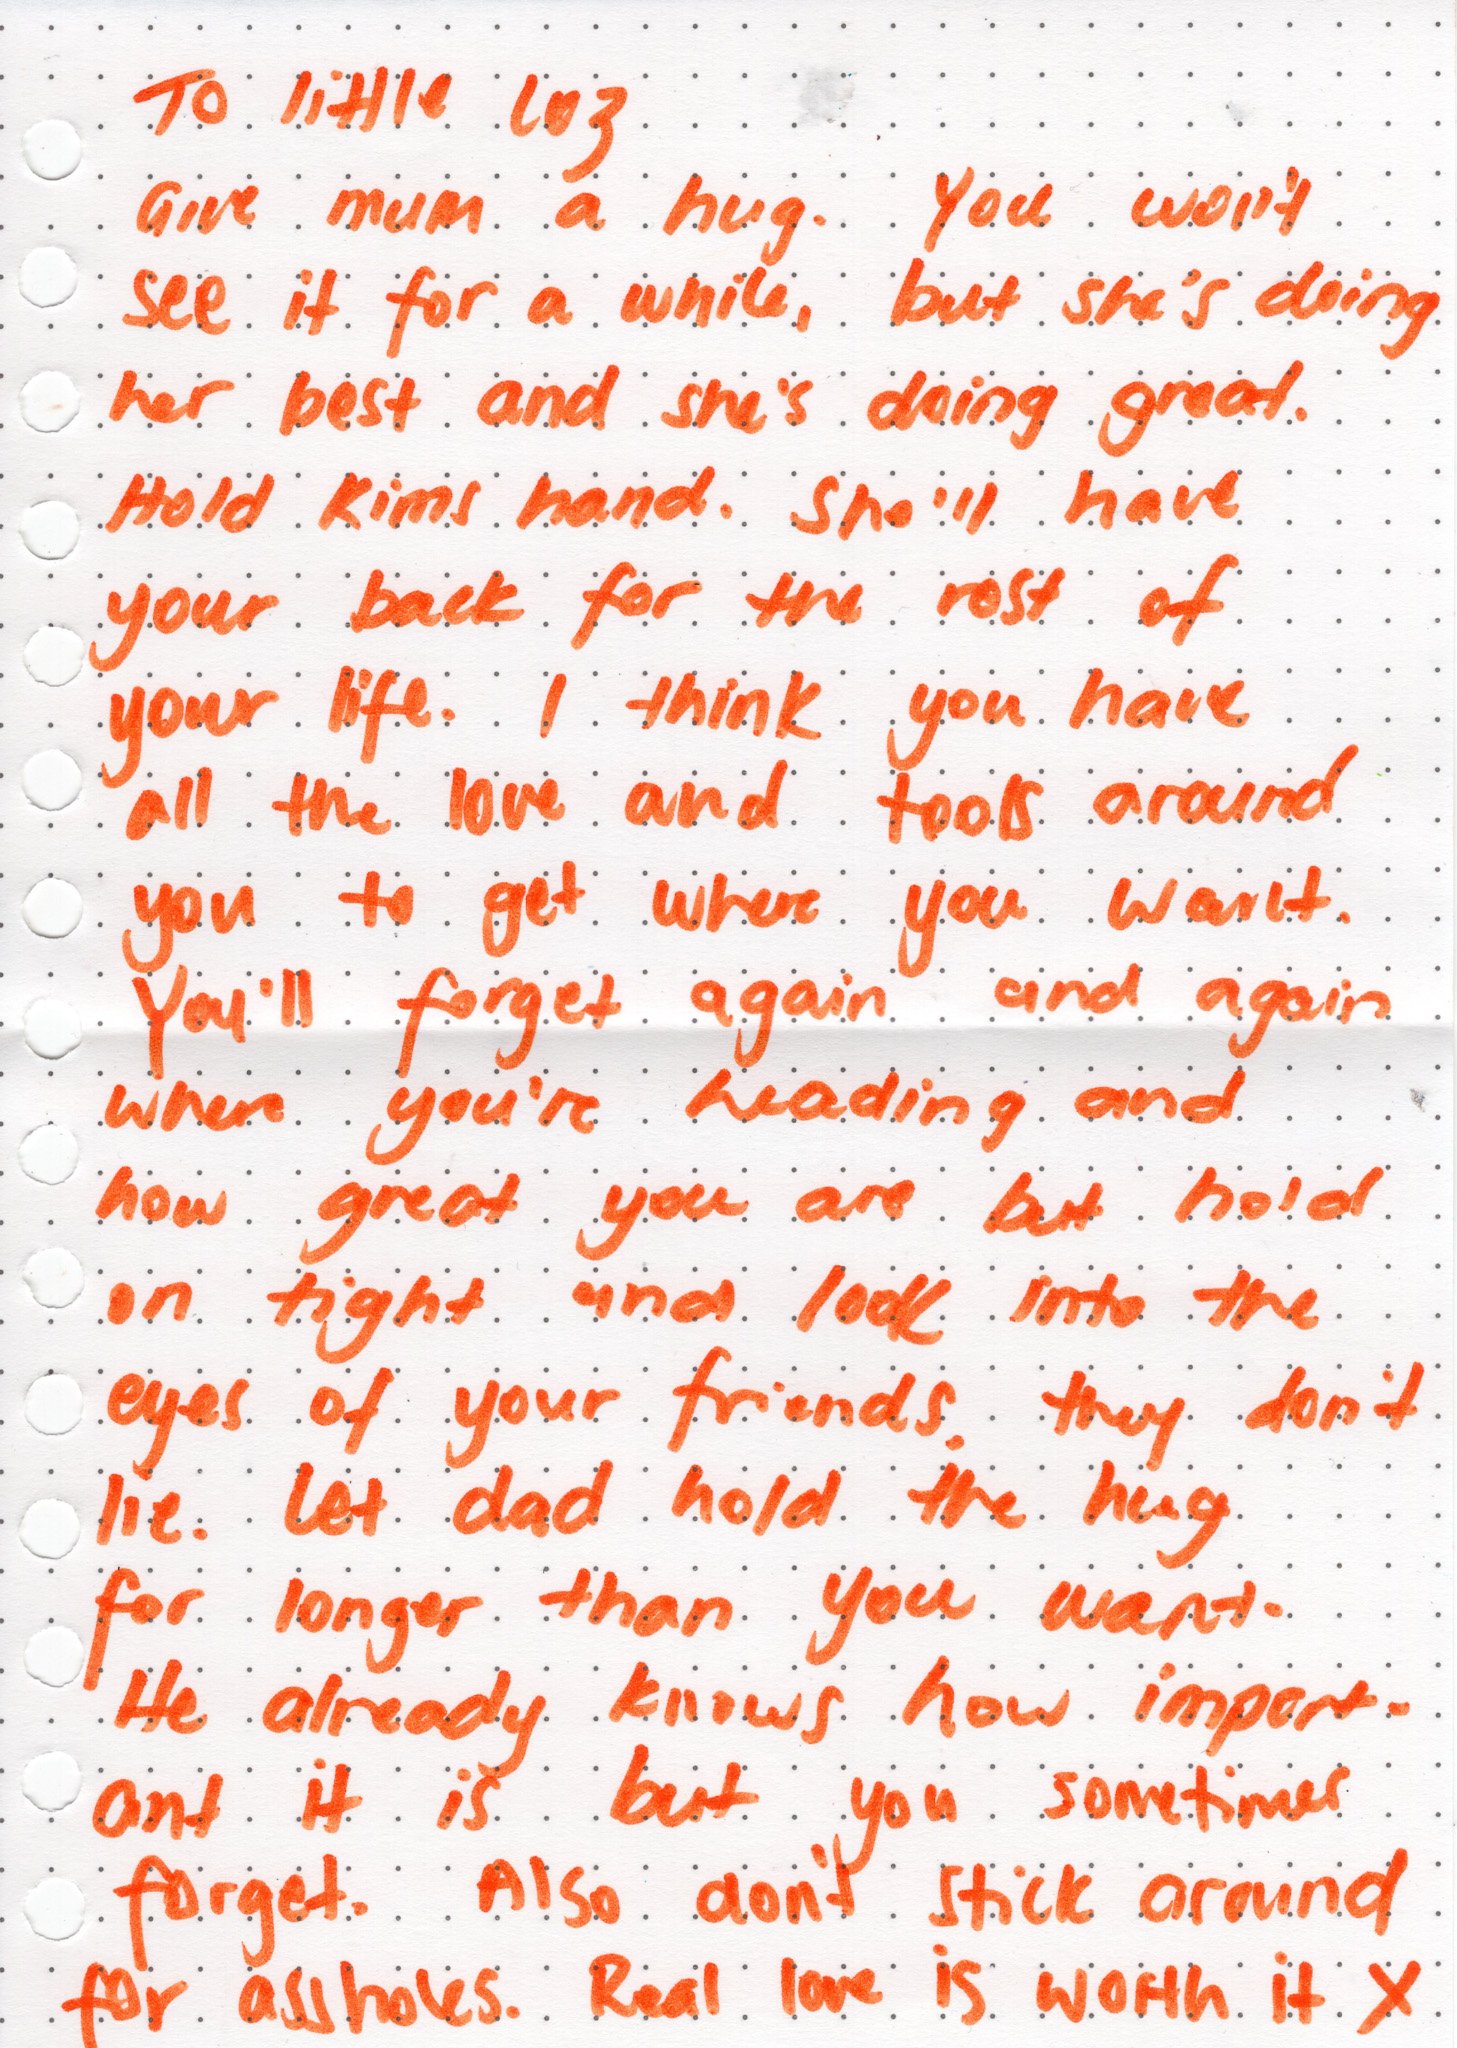 To little Loz
Give mum a hug. You won't
see it for a while, but she's doing
her best and she's doing great.
Hold Kims hand. She'll have
your back for the rest of
your life. I think you have
all the love and tools around
you to get where you want.
You'll forget again and again
where you're heading and
how great you are but hold
on tight and look into the
eyes of your friends, they don't
lie. Let dad hold the hug
for longer than you want.
He already knows how import-
ant it is but you sometimes
forget. Also don't stick around
for assholes. Real love is worth it X